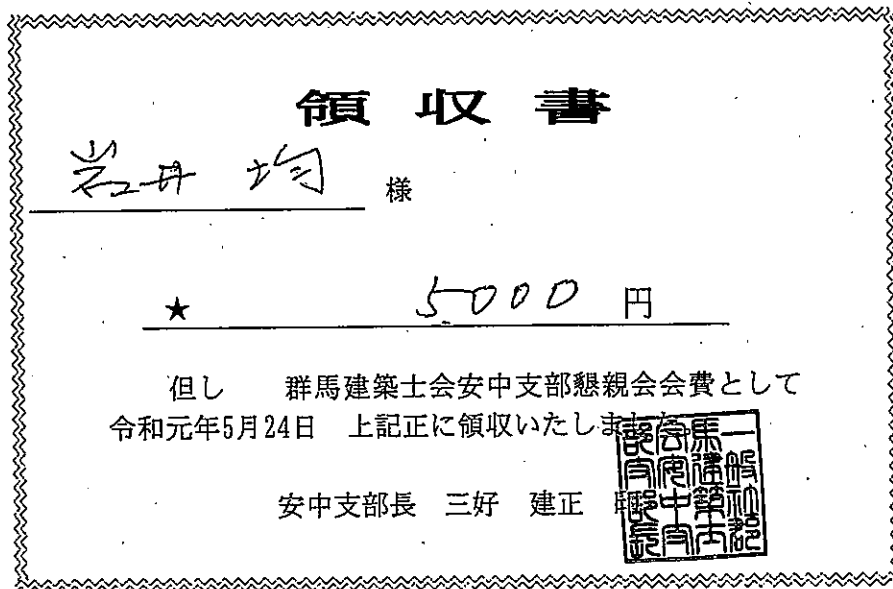 領収書
岩井 均 様
★ 5000 円
但し 群馬建築士会安中支部懇親会会費として
令和元年5月24日 上記正に領収いたしました
安中支部長 三好 建正